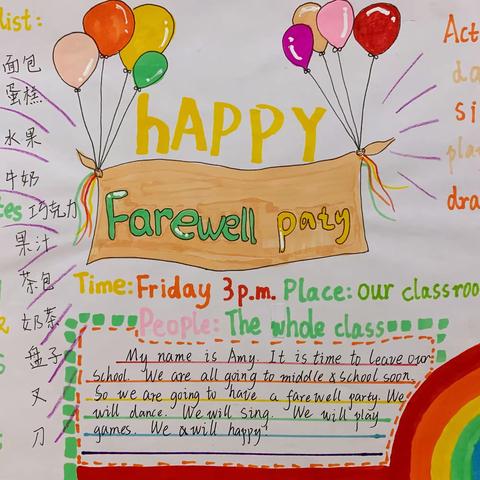 list:
面包
蛋糕
水果
牛奶
tes 巧克力
果汁
茶包
奶茶
盘子
叉
刀
Act
da
si
pla
dra
hAPPY
Farewell paty
Time: Friday 3p.m. Place: our classroo
People: The whole class
My name is Amy. It is time to leave our
school. We are all going to middle school soon.
So we are going to have a farewell party. We
will dance. We will sing. We will play
games. We will happy!